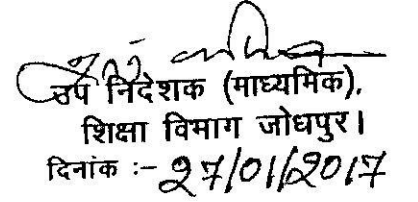 उप निदेशक (माध्यमिक),
शिक्षा विभाग जोधपुर।
दिनांक :- 27/01/2017